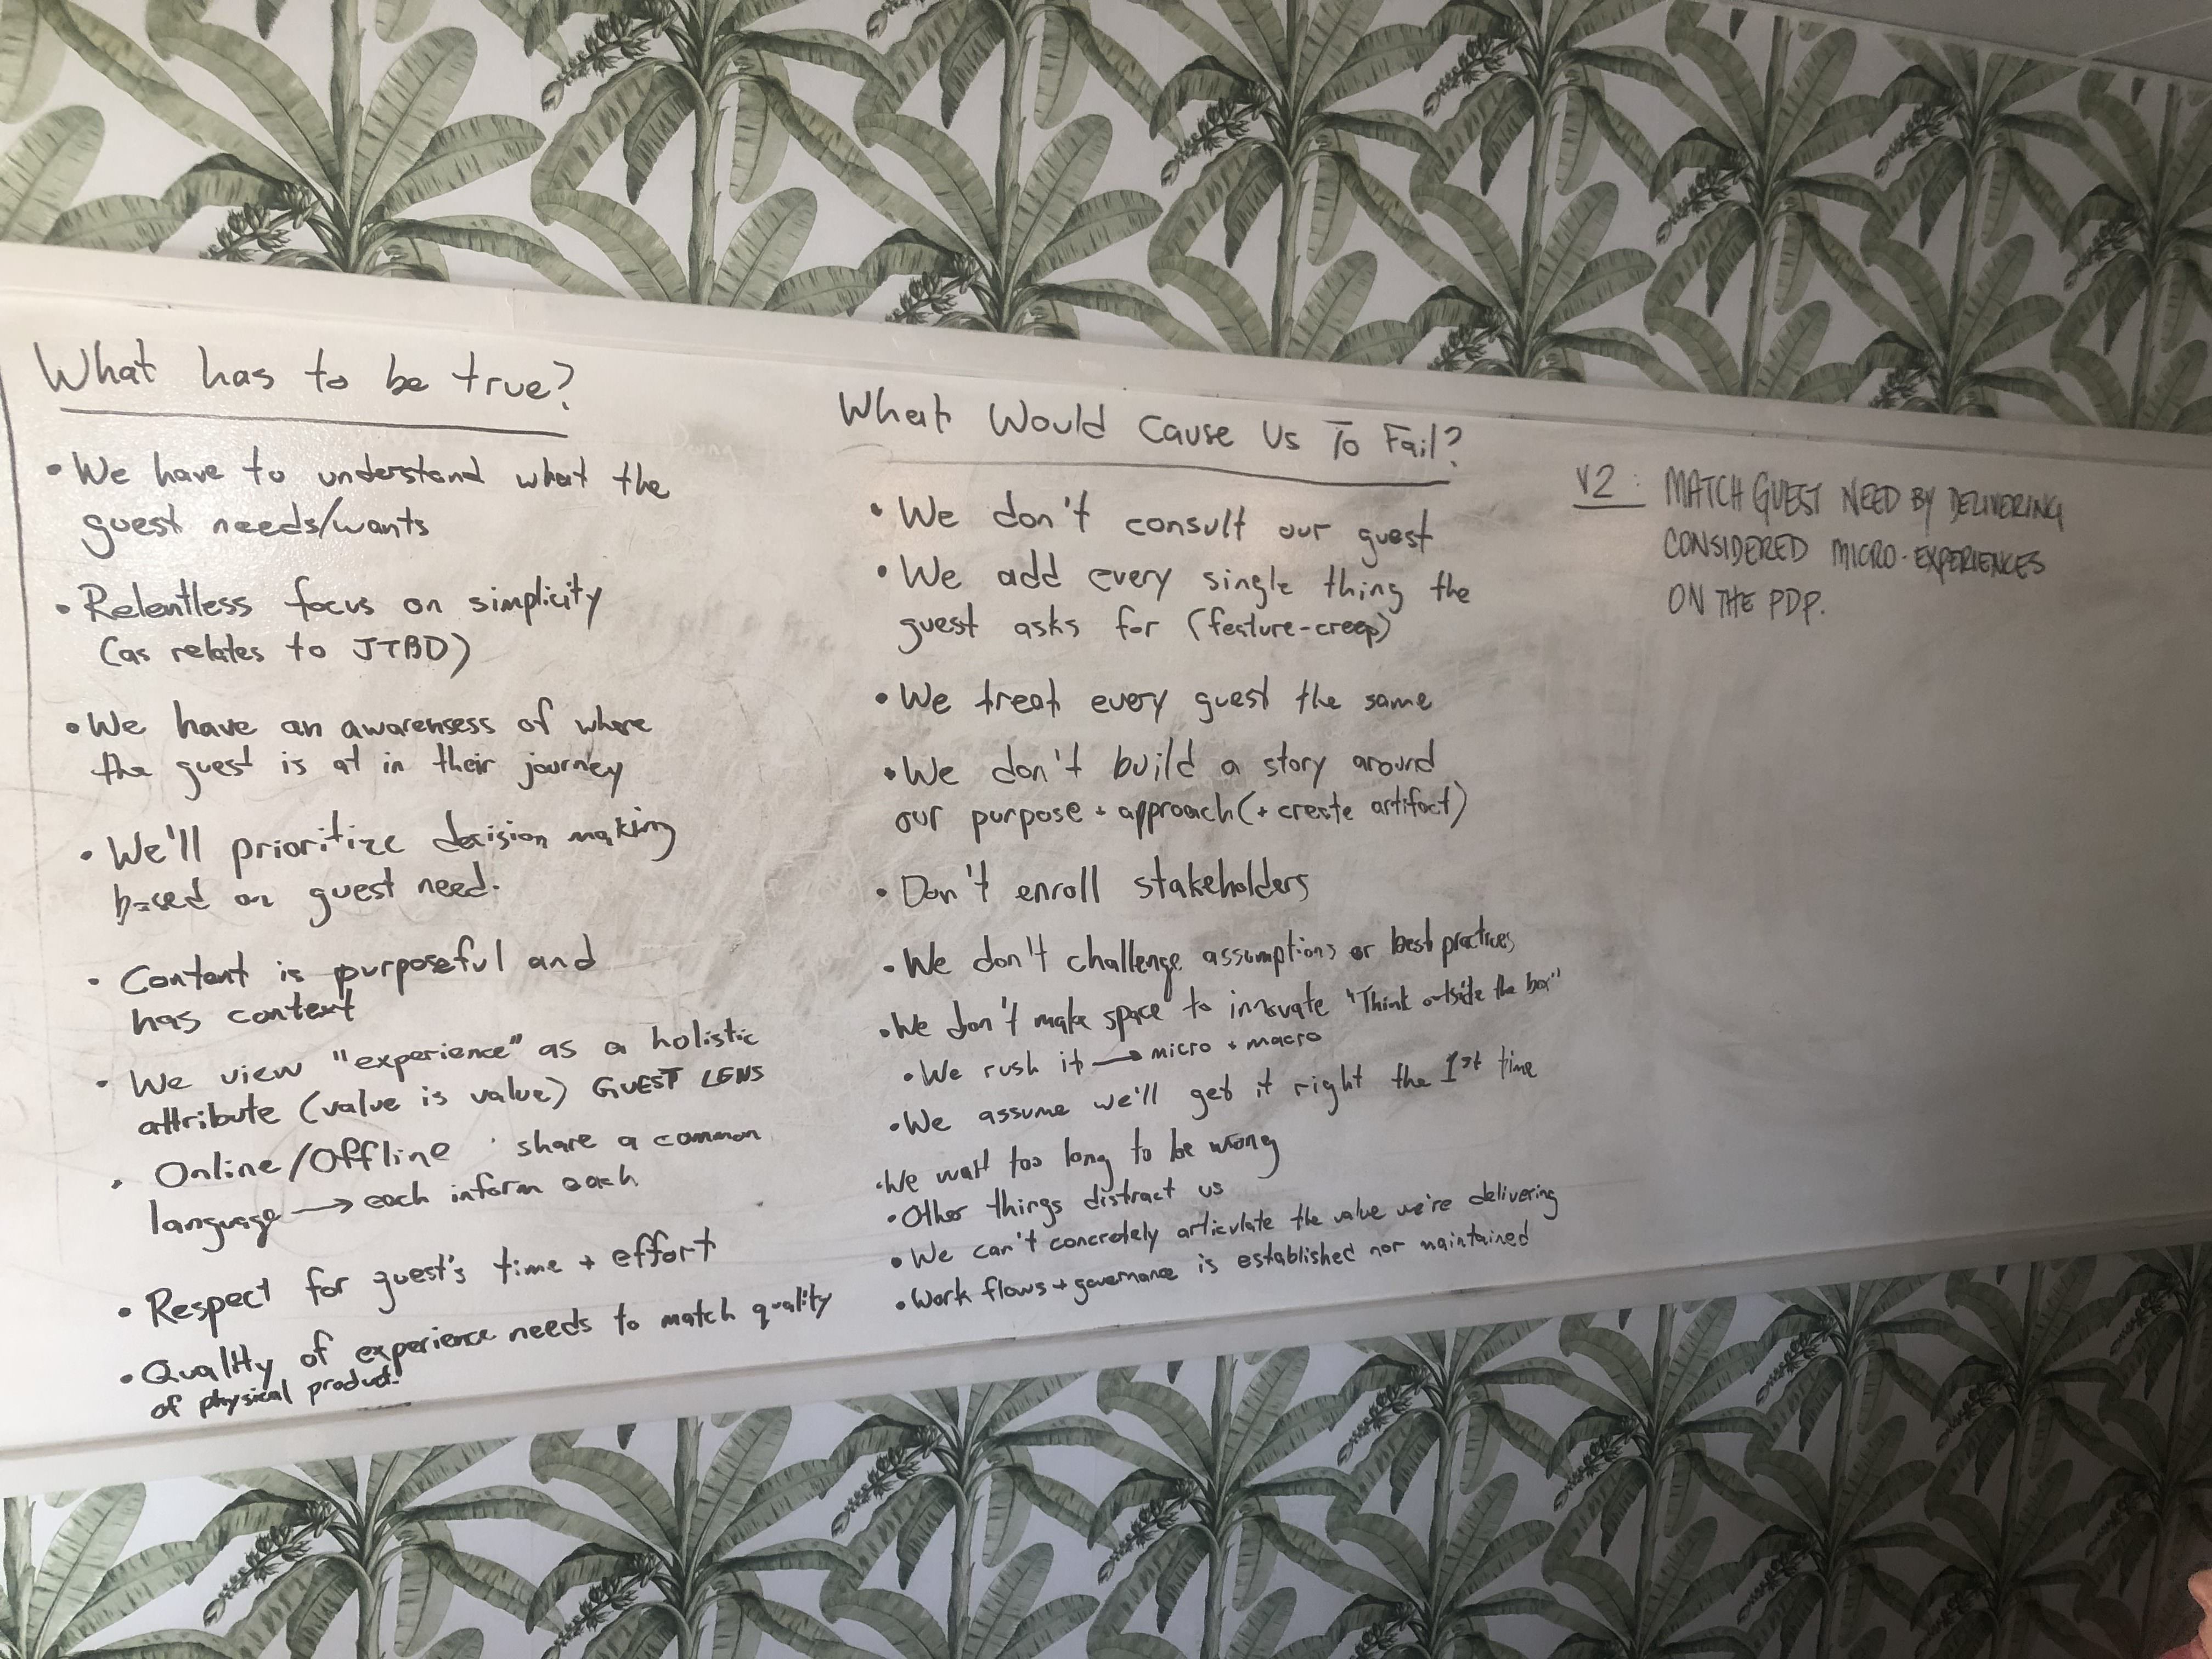 What has to be true?
• We have to understand what the
guest needs/wants
• Relentless focus on simplicity
(as relates to JTBD)
• We have an awarensess of where
the guest is at in their journey
• We'll prioritize decision making
based on guest need.
• Content is purposeful and
has context
• We view "experience" as a holistic
attribute (value is value) GUEST LENS
• Online/Offline share a common
language → each inform each
• Respect for guest's time + effort
• Quality of experience needs to match quality
of physical product!
What Would Cause Us To Fail?
• We don't consult our guest
• We add every single thing the
guest asks for (feature-creep)
• We treat every guest the same
• We don't build a story around
our purpose + approach (+ create artifact)
• Don't enroll stakeholders
• We don't challenge assumptions or best practices
• We don't make space to innovate "Think outside the box"
• We rush it → micro + macro
• We assume we'll get it right the 1st time
• We wait too long to be wrong
• Other things distract us
• We can't concretely articulate the value we're delivering
• Work flows + governance is established nor maintained
V2: MATCH GUEST NEED BY DELIVERING
CONSIDERED MICRO-EXPERIENCES
ON THE PDP.